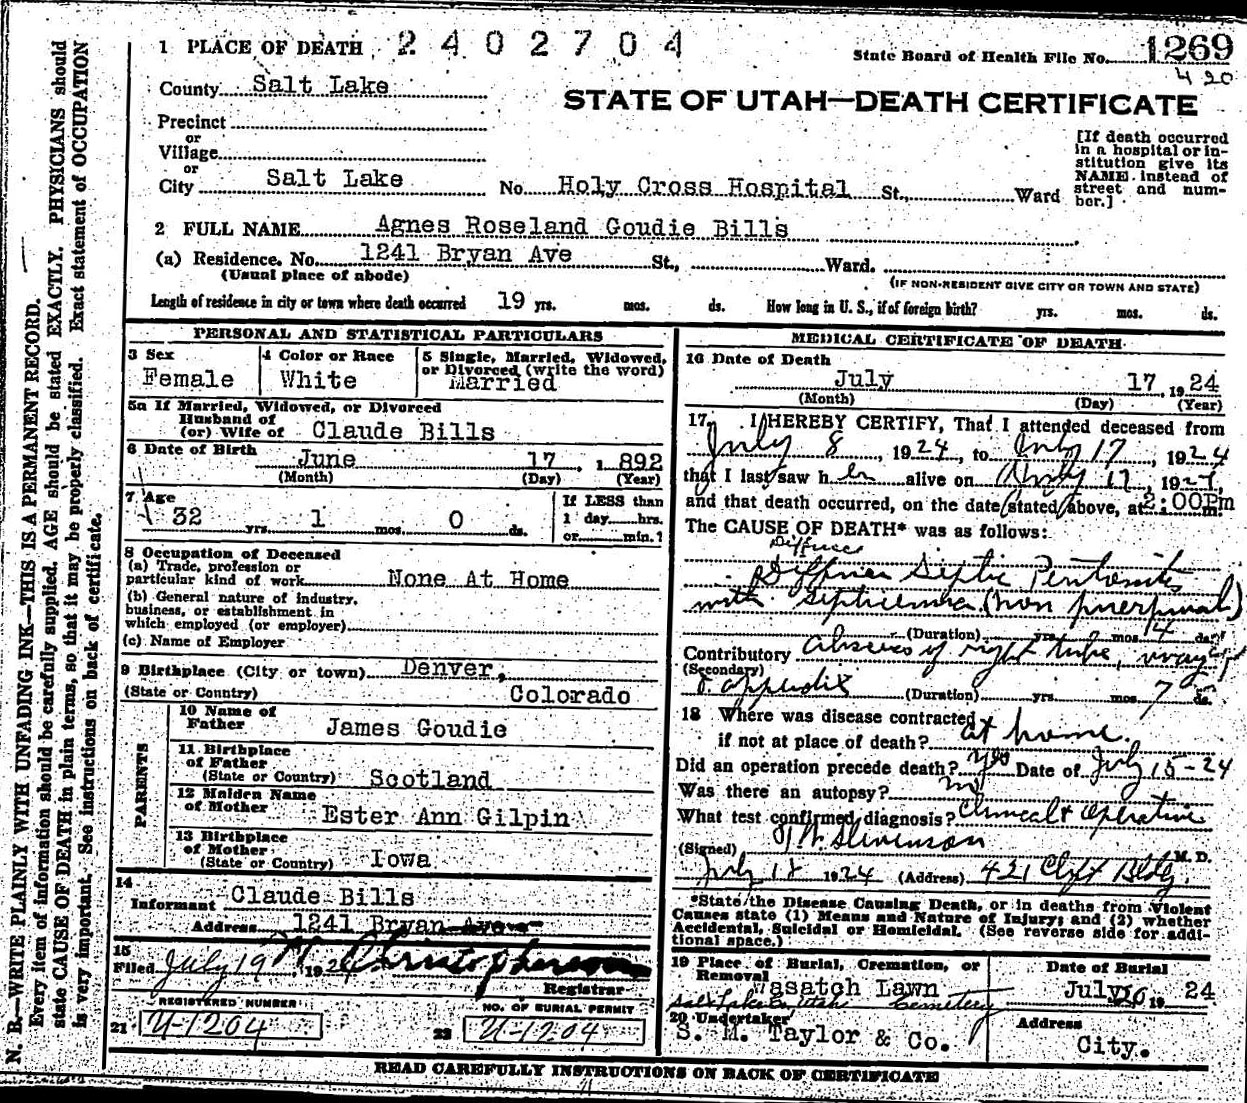 1 PLACE OF DEATH 2402704
State Board of Health File No. 1269
420
County Salt Lake
STATE OF UTAH—DEATH CERTIFICATE
Precinct
or
Village
or
City Salt Lake No. Holy Cross Hospital St., Ward
[If death occurred
in a hospital or in-
stitution give its
NAME instead of
street and num-
ber.]
2 FULL NAME Agnes Roseland Goudie Bills
(a) Residence. No. 1241 Bryan Ave St., Ward.
(Usual place of abode) (IF NON-RESIDENT GIVE CITY OR TOWN AND STATE)
Length of residence in city or town where death occurred 19 yrs. mos. ds. How long in U. S., if of foreign birth? yrs. mos. ds.
PERSONAL AND STATISTICAL PARTICULARS
3 Sex
Female
4 Color or Race
White
5 Single, Married, Widowed,
or Divorced (write the word)
Married
5a If Married, Widowed, or Divorced
Husband of
(or) Wife of Claude Bills
6 Date of Birth June 17, 1892
(Month) (Day) (Year)
7 Age
32 yrs. 1 mos. 0 ds.
If LESS than
1 day hrs.
or min.?
8 Occupation of Deceased
(a) Trade, profession or
particular kind of work None At Home
(b) General nature of industry,
business, or establishment in
which employed (or employer)
(c) Name of Employer
9 Birthplace (City or town) Denver,
(State or Country) Colorado
PARENTS
10 Name of
Father James Goudie
11 Birthplace
of Father
(State or Country) Scotland
12 Maiden Name
of Mother Ester Ann Gilpin
13 Birthplace
of Mother
(State or Country) Iowa
14
Informant Claude Bills
Address 1241 Bryan Ave
15
Filed July 19, 1924 Christopherson
Registrar
REGISTERED NUMBER
21 U-1204
NO. OF BURIAL PERMIT
22 U-1204
MEDICAL CERTIFICATE OF DEATH
16 Date of Death
July 17, 1924
(Month) (Day) (Year)
17. I HEREBY CERTIFY, That I attended deceased from
July 8, 1924, to July 17, 1924
that I last saw her alive on July 17, 1924,
and that death occurred, on the date stated above, at 2:00 Pm m.
The CAUSE OF DEATH* was as follows:
Diffuse
Septic Peritonitis
with Septicemia (non puerperal)
(Duration) yrs. mos. 14 days
Contributory abscess of right tube, ovary
(Secondary)
& appendix (Duration) yrs. mos. 7 ds.
18 Where was disease contracted
if not at place of death? at home.
Did an operation precede death? yes Date of July 15-24
Was there an autopsy? no
What test confirmed diagnosis? Clinical & Operative
(Signed) Stevenson M. D.
July 18 1924 (Address) 421 Clift Bldg.
*State the Disease Causing Death, or in deaths from Violent
Causes state (1) Means and Nature of Injury; and (2) whether
Accidental, Suicidal or Homicidal. (See reverse side for addi-
tional space.)
19 Place of Burial, Cremation, or
Removal Wasatch Lawn
Salt Lake Co, Utah Cemetery
Date of Burial
July 20 19 24
20 Undertaker
S. M. Taylor & Co.
Address
City.
READ CAREFULLY INSTRUCTIONS ON BACK OF CERTIFICATE
N. B.—WRITE PLAINLY WITH UNFADING INK—THIS IS A PERMANENT RECORD.
Every item of information should be carefully supplied. AGE should be stated EXACTLY. PHYSICIANS should
state CAUSE OF DEATH in plain terms, so that it may be properly classified. Exact statement of OCCUPATION
is very important. See instructions on back of certificate.